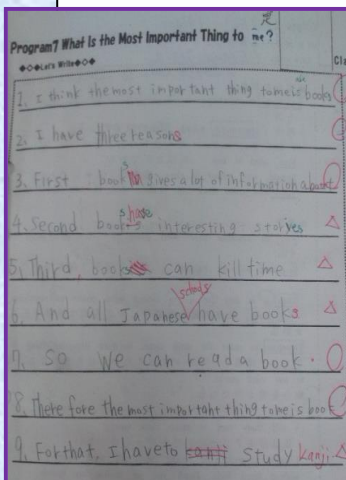 Program7 What Is the Most Important Thing to me?
◆◇◆Let's Write◆◇◆
1. I think the most important thing to me is books
2. I have three reasons
3. First books gives a lot of information about
4. Second books have interesting stories
5. Third, books can kill time
6. And all Japanese schools have books
7. So We can read a book.
8. There fore the most important thing to me is book
9. For that, I have to study kanji.